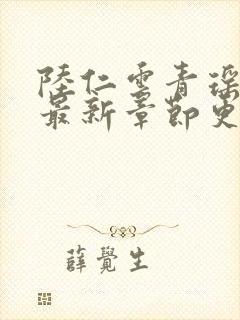 陸仁雲青瑶
最新章節更
薛覺生